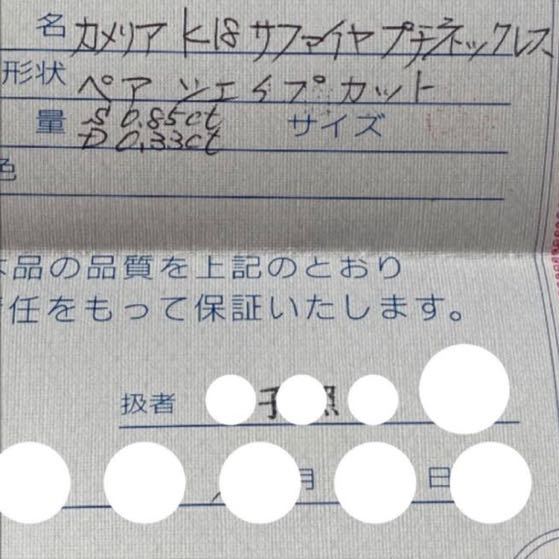 名 カメリア K18 サファイヤ プチネックレス
形状 ペア シェイプ カット
量 S 0.85ct サイズ
D 0.33ct
色
本品の品質を上記のとおり
責任をもって保証いたします。
扱者 子 照
月 日